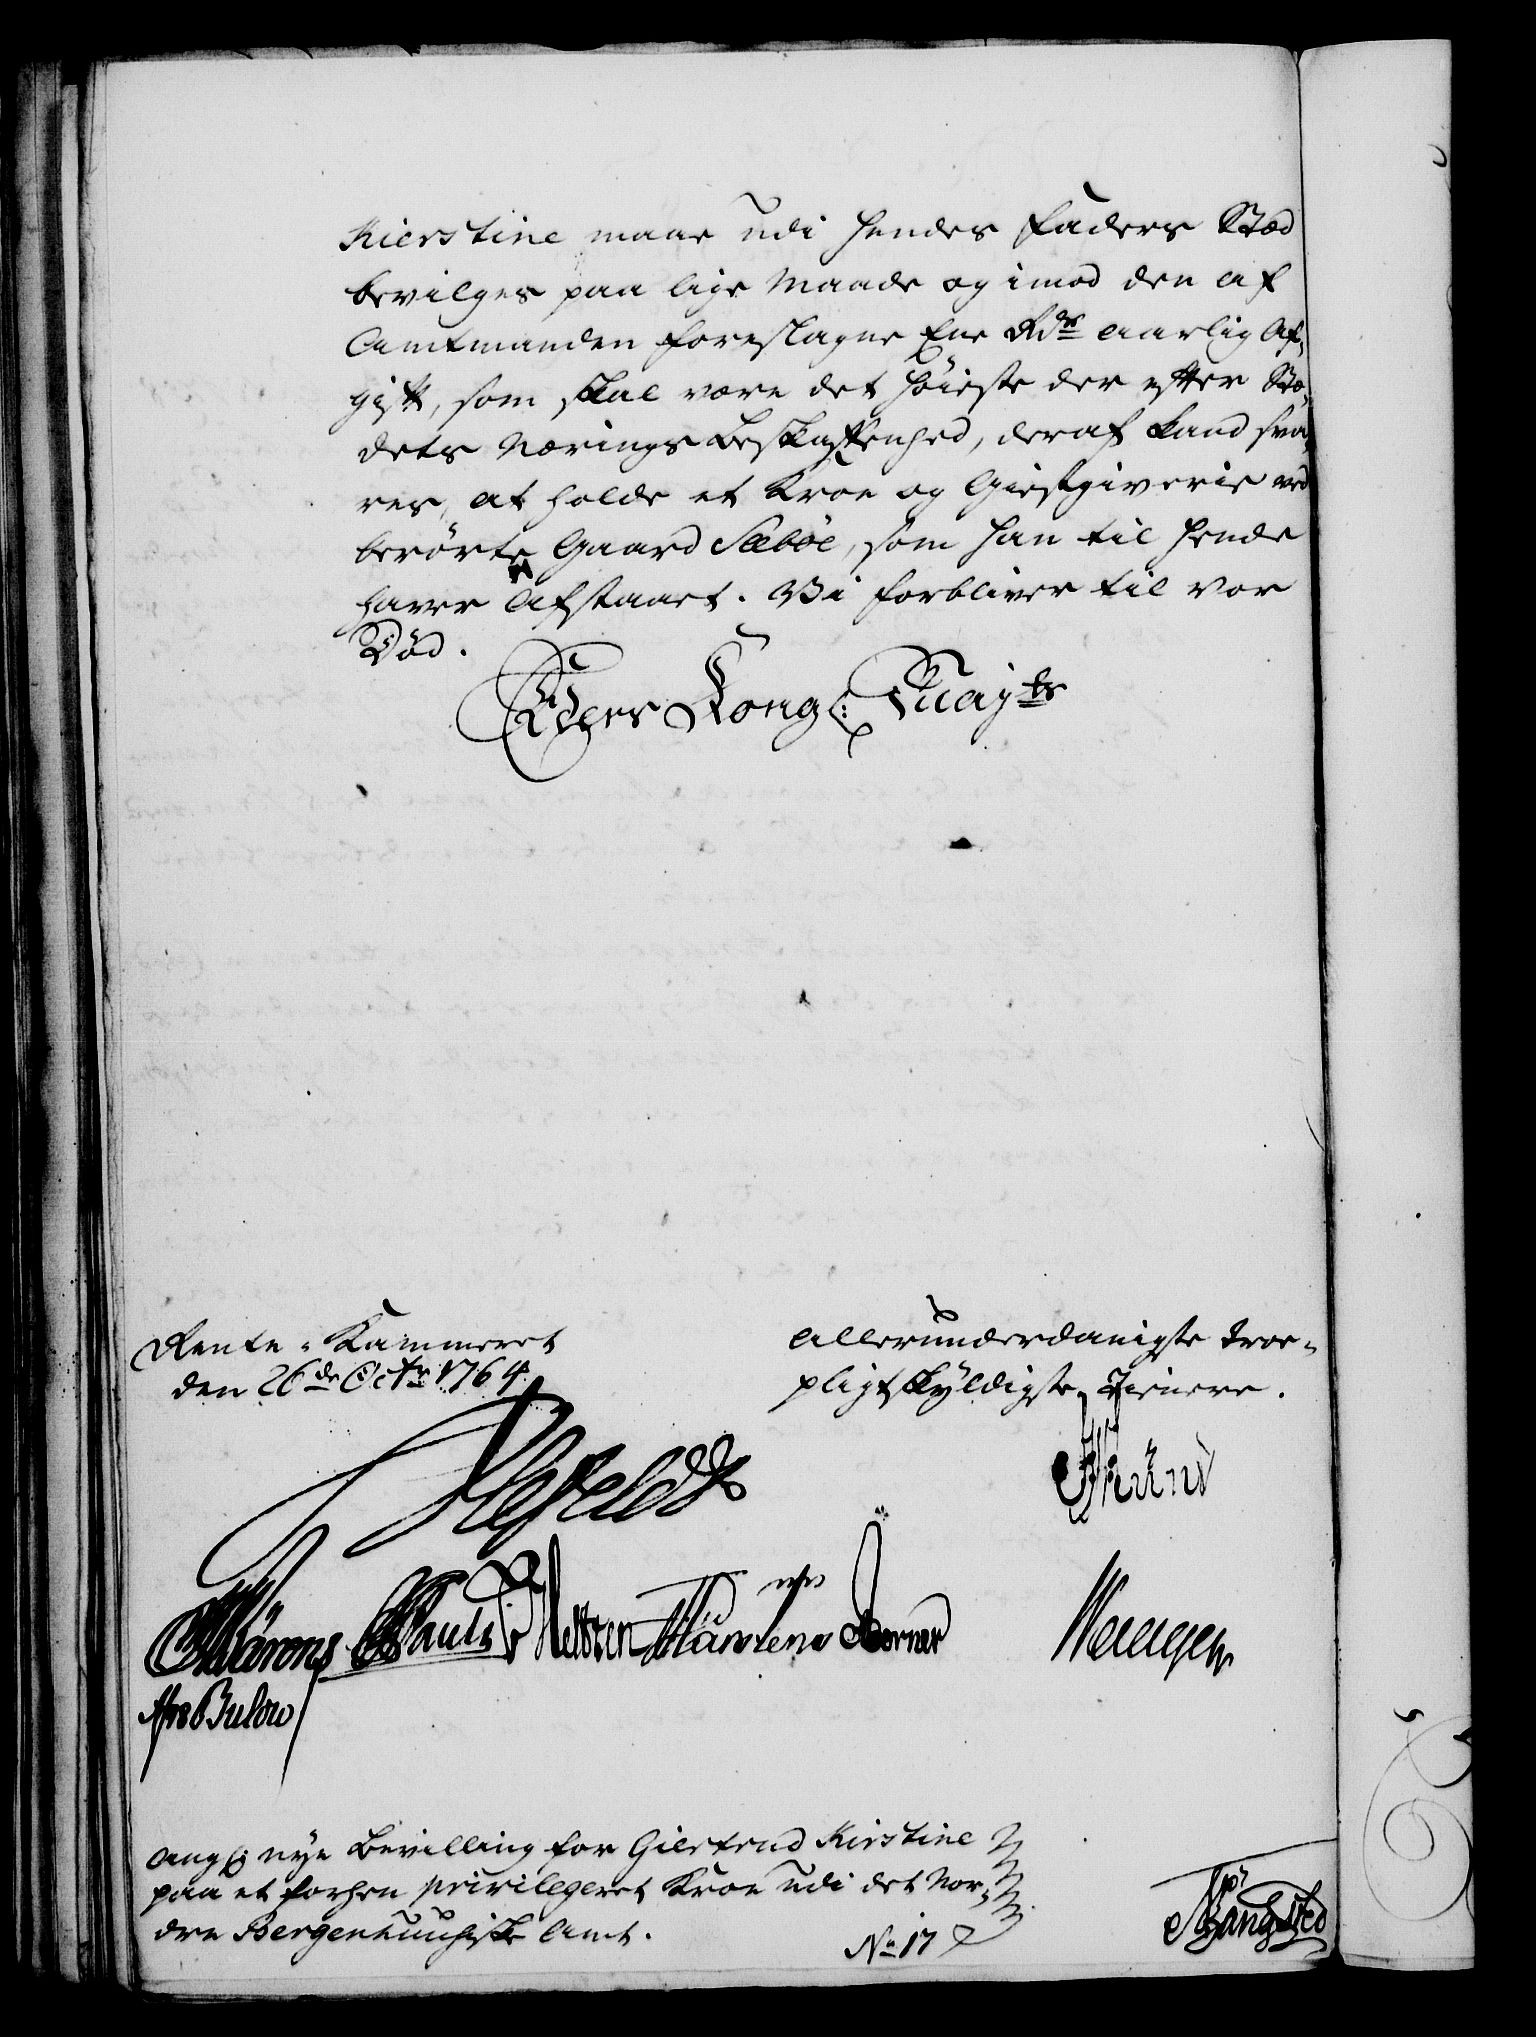 Kierstine maae udi hendes Faders Stæd
bevilges paa lige Maade og imod den af
Amtmanden foreslagne Een Rdr aarlig Af-
gift, som skal være det høieste der efter Stæ-
dets Nærings Beskaffenhed, deraf kand sva-
res, at holde et Kroe og Giestgiverie ved
berørte Gaard Sæbøe, som han til hende
haver Afstaaet. Vi forbliver til vor
Død.
Eders Kongl: Mayts
Rente-Kammeret
den 26de Octr 1764
allerunderdanigste troe-
pligtskyldigste Tienere.
Ahlefeldt
Pauli Heltzen Martens Berner
Bulow
ang: nye Bevilling for Giertrud Kirstine
paa et forhen privilegeret Kroe udi det Nor-
dre Bergenhuusiske Amt.
No 17
Bangsted